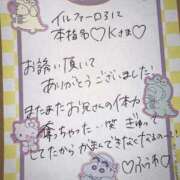 イルファーロ31に
本指名♡Kさま♡
お誘い頂いて
ありがとうございました!
またまたお兄さんの体力
奪っちゃった…笑 ぎゅー
してたからがまんできなくなるの…!
♡ふうわ♡